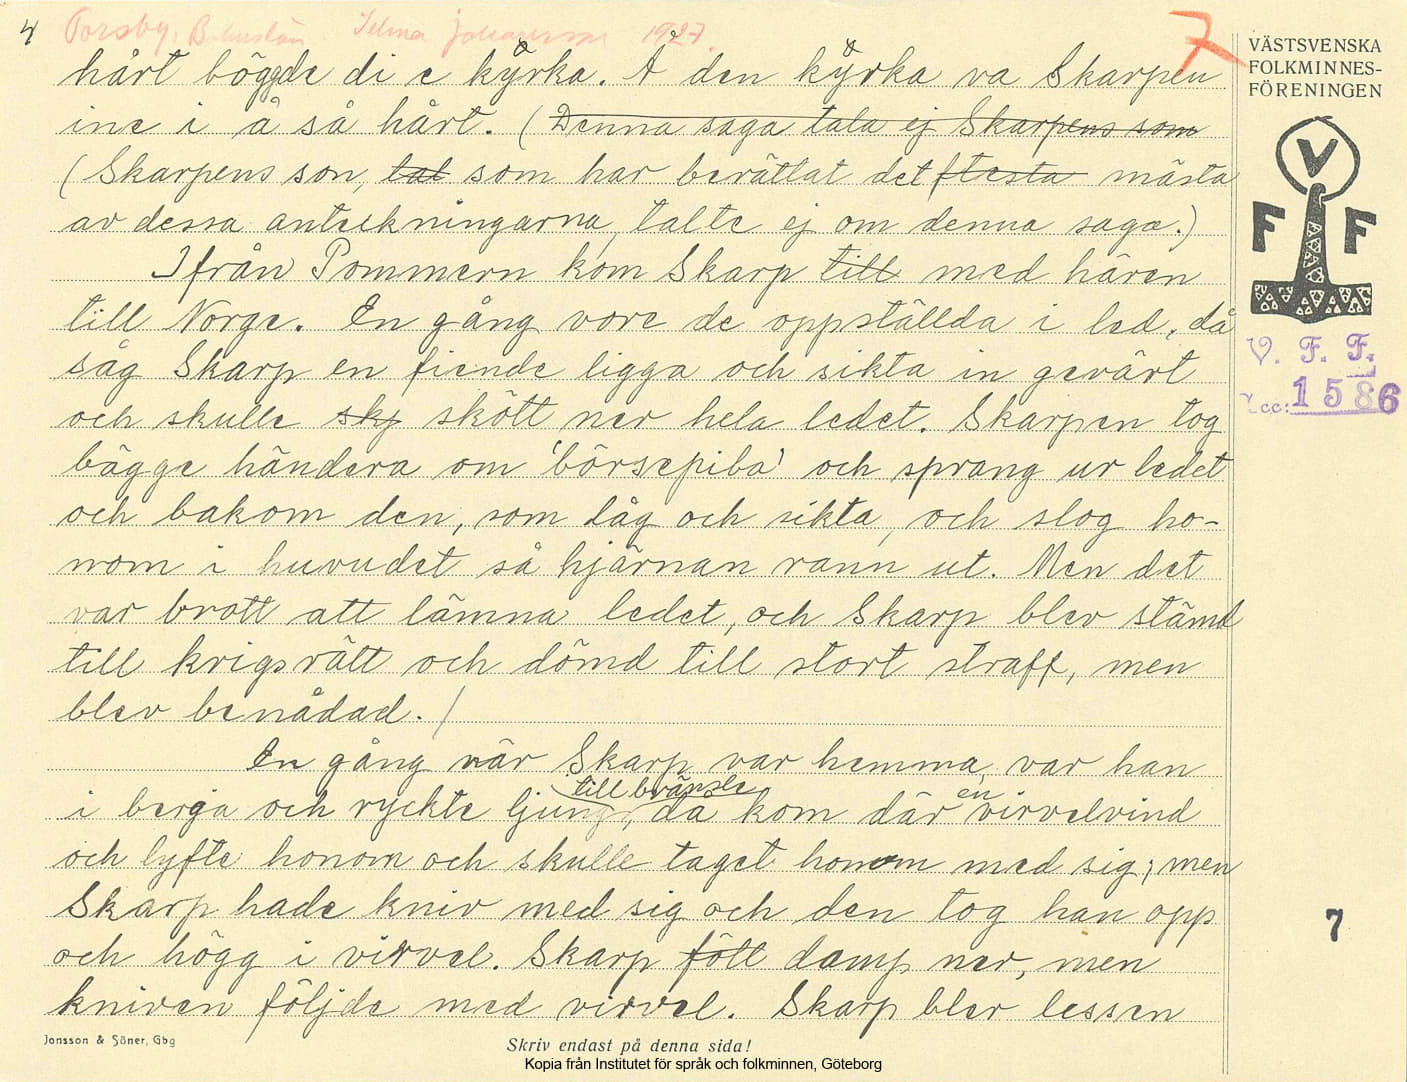 4 Torsby, Bohuslän. Selma Johansson 1927.
7
VÄSTSVENSKA
FOLKMINNES-
FÖRENINGEN
hårt böggde di e kyrka. Å den kyrka va Skarpen
ine i å så hårt. (Denna saga tala ej Skarpens som
(Skarpens son, tal som har berättat det flesta mästa
av dessa anteckningarna, talte ej om denna saga.)
Ifrån Pommern kom Skarp till med hären
till Norge. En gång vore de oppställda i led, då
såg Skarp en fiende ligga och sikta in gevärt
och skulle skj skött ner hela ledet. Skarpen tog
bägge händera om 'börsepiba' och sprang ur ledet
och bakom den, som låg och sikta, och slog ho-
nom i huvudet så hjärnan rann ut. Men det
var brott att lämna ledet, och Skarp blev stämd
till krigsrätt och dömd till stort straff, men
blev benådad. /
En gång när Skarp var hemma, var han
till bränsle en
i berga och ryckte ljung, då kom där virvelvind
och lyfte honom och skulle taget honom med sig; men
Skarp hade kniv med sig och den tog han opp
och högg i virvel. Skarp föll damp ner, men
kniven följde med virvel. Skarp blev lessen
V
F F
V. F. F.
Acc: 1586
7
Jonsson & Söner, Gbg
Skriv endast på denna sida!
Kopia från Institutet för språk och folkminnen, Göteborg